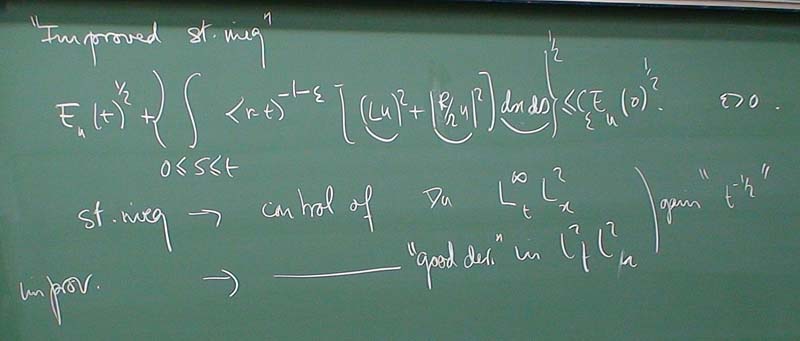 "Improved st. ineq"
E_u(t)^{1/2} + { ∫_{0≤s≤t} <r-t>^{-1-ε} [(Lu)^2 + |R/r u|^2] dx ds }^{1/2} ≤ C_ε E_u(0)^{1/2}. ε>0.
st. ineq → control of Du L^∞_t L^2_x ) gain "t^{-1/2}"
improv. → ——— "good der." in L^2_t L^2_x